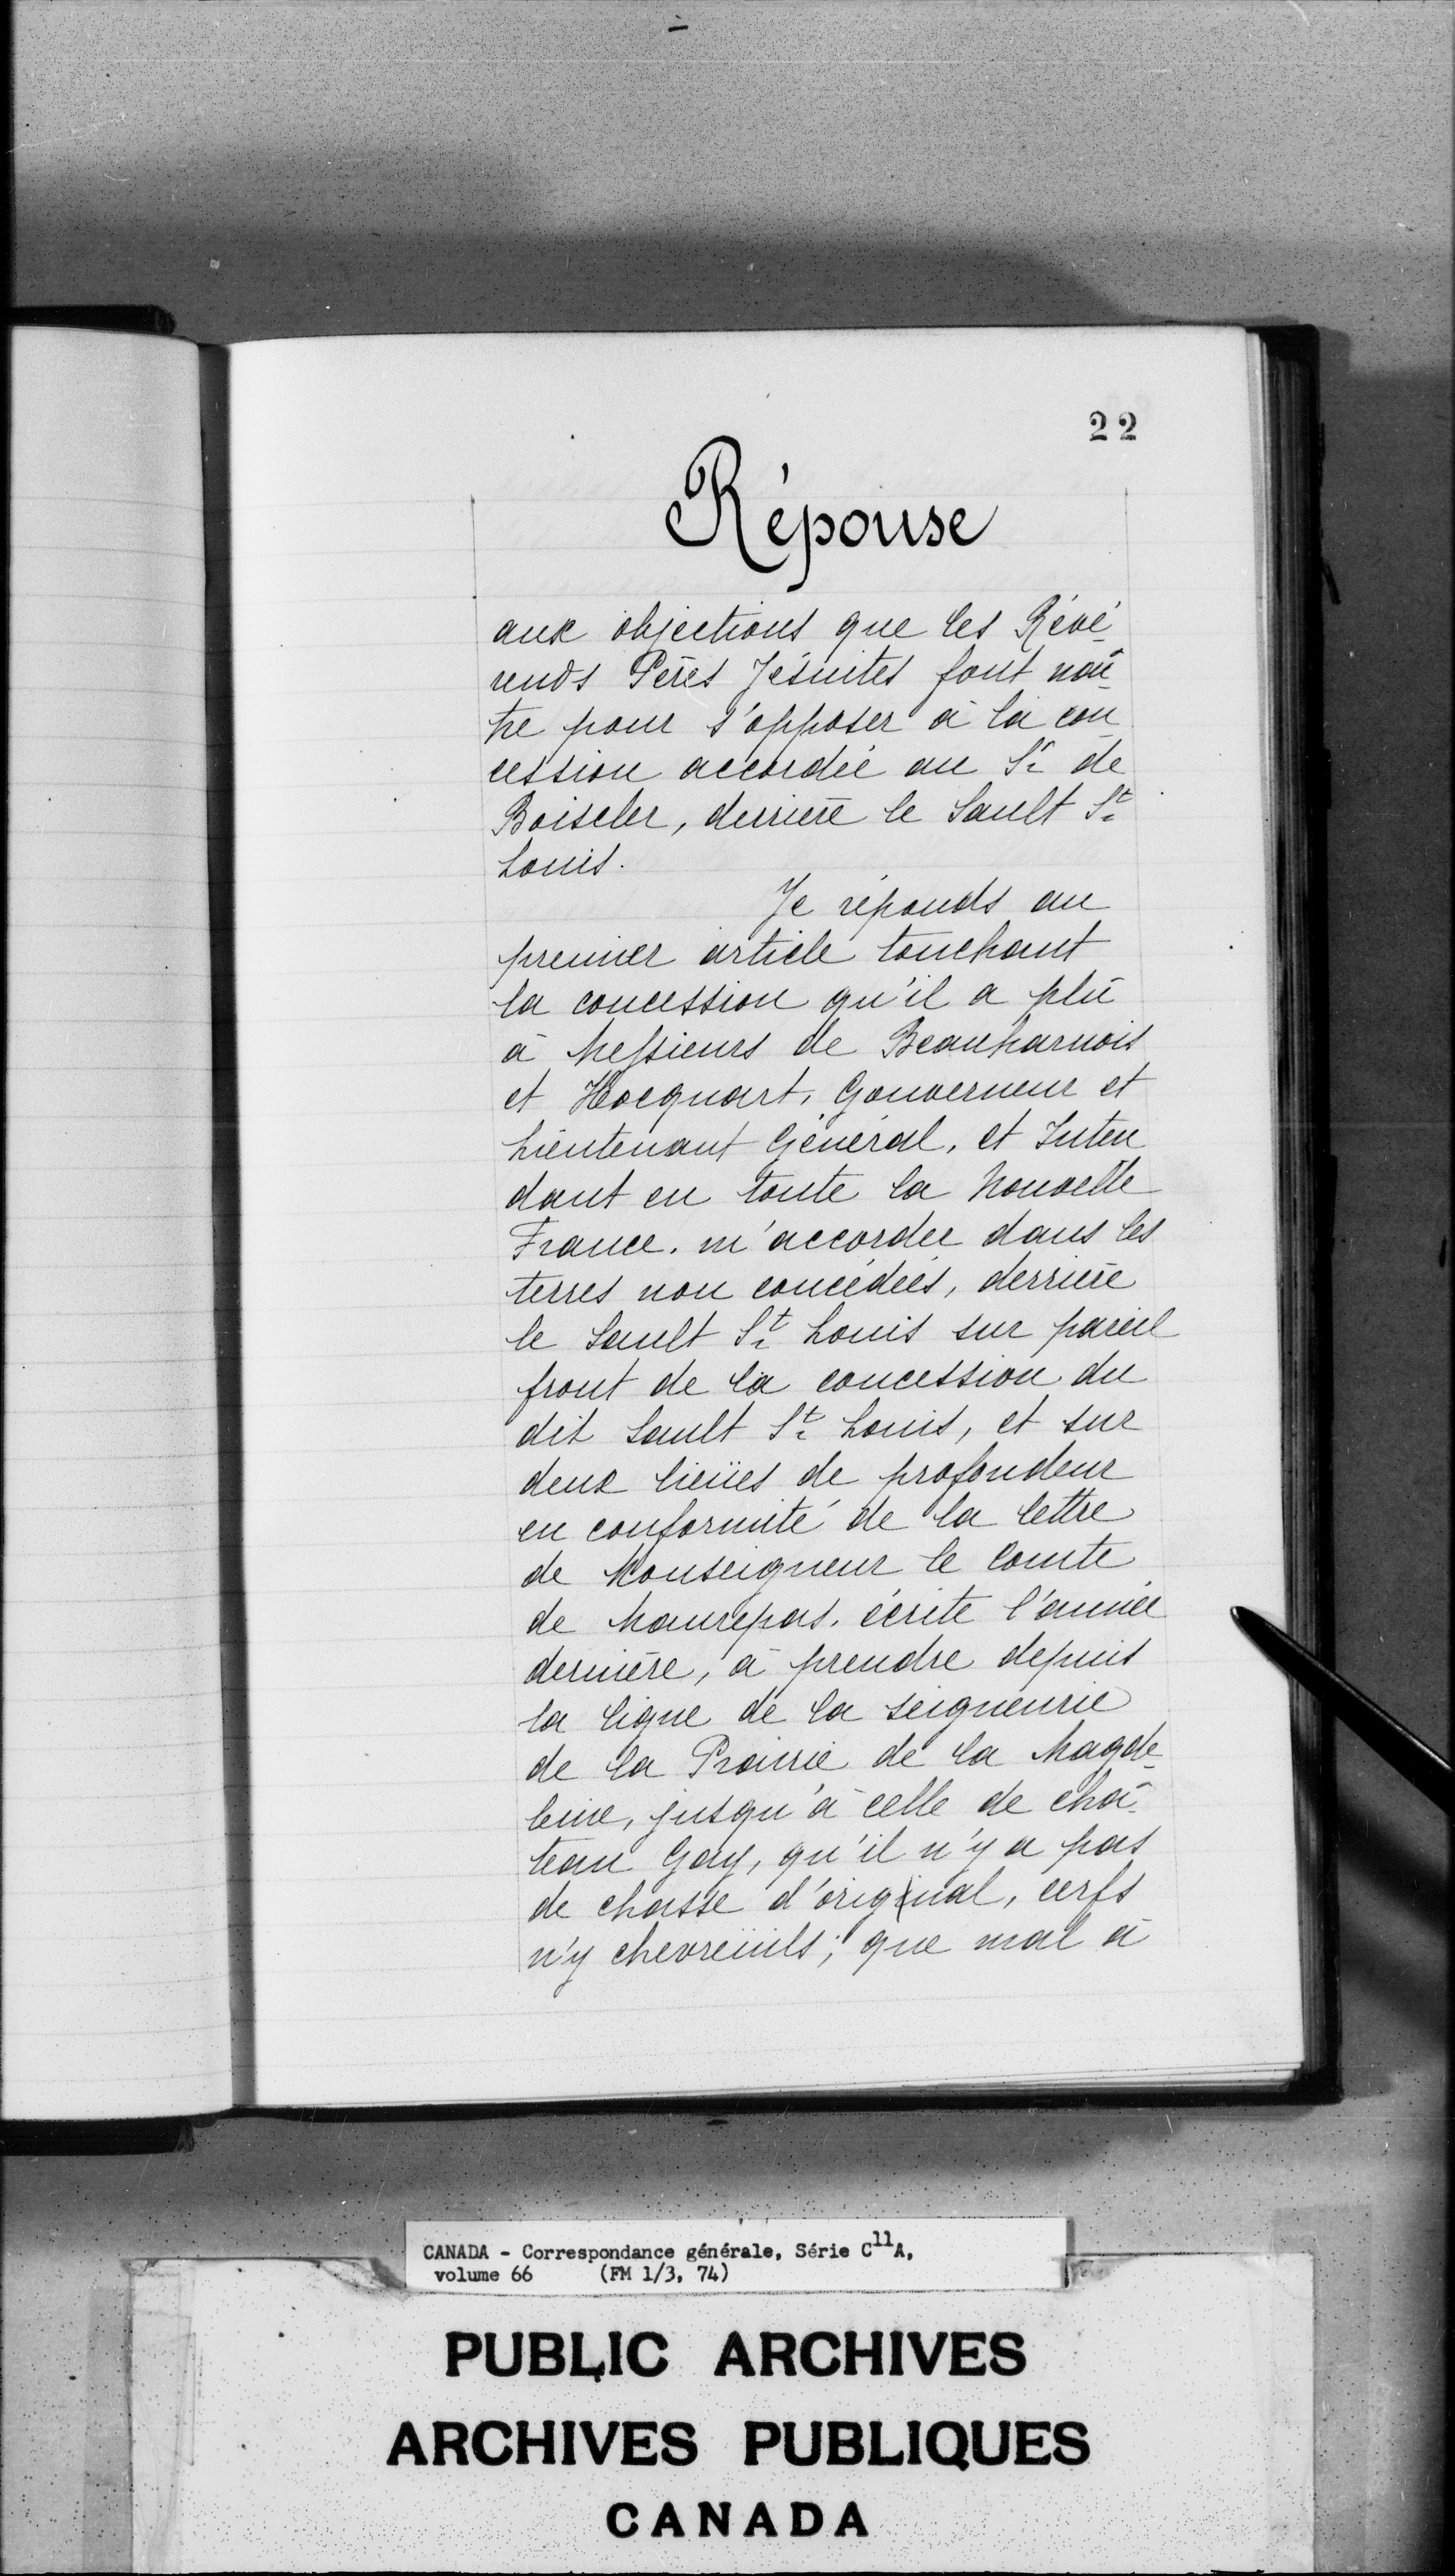 22
Réponse
aux objections que les Révé-
rends Péres Jésuites font naî-
tre pour s'opposer à la con-
cession accordée au Sr de
Boiscler, derriere le Sault St
Louis.
Je réponds au
premier article touchant
la concession qu'il a plû
à Messieurs de Beauharnois
et Hocquart, Gouverneur et
Lieutenant Général, et Inten
dant en toute la Nouvelle
France, m'accorder dans les
terres non concédées, derriere
le Sault St Louis sur pareil
front de la concession du
dit Sault St Louis, et sur
deux lieües de profondeur
en conformité de la lettre
de Monseigneur le Comte
de Maurepas, écrite l'année
derniére, à prendre depuis
la ligne de la seigneurie
de la Prairie de la Magde-
leine, jusqu'à celle de châ-
teau Gay, qu'il n'y a pas
de chasse d'original, cerfs
n'y chevreüils; que mal à
CANADA - Correspondance générale, Série C11A,
volume 66 (FM 1/3, 74)
PUBLIC ARCHIVES
ARCHIVES PUBLIQUES
CANADA